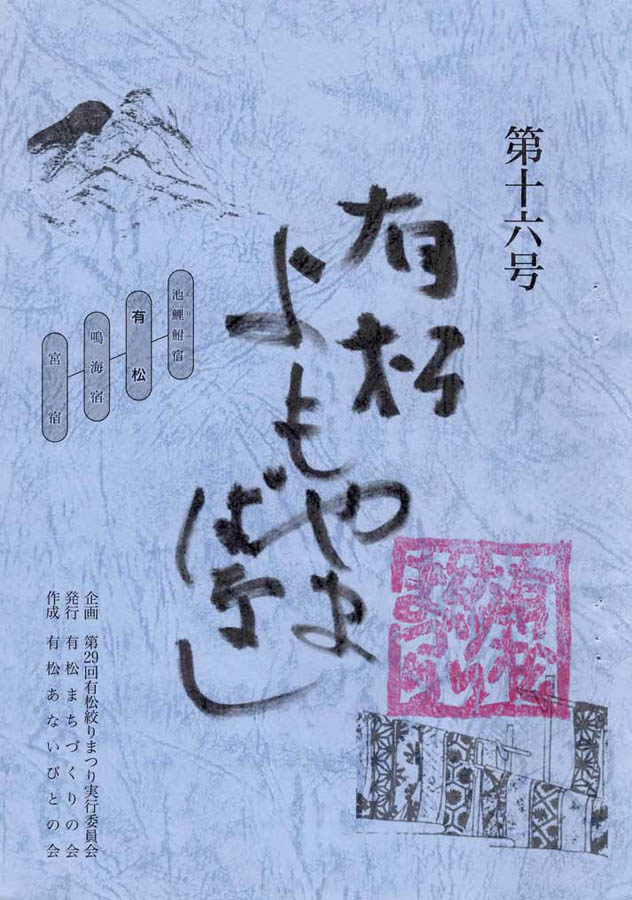 第十六号
有松
よもやま
ばなし
池鯉鮒宿
有松
鳴海宿
宮宿
有松
絞り
まつり
企画 第29回有松絞りまつり実行委員会
発行 有松まちづくりの会
作成 有松あないびとの会